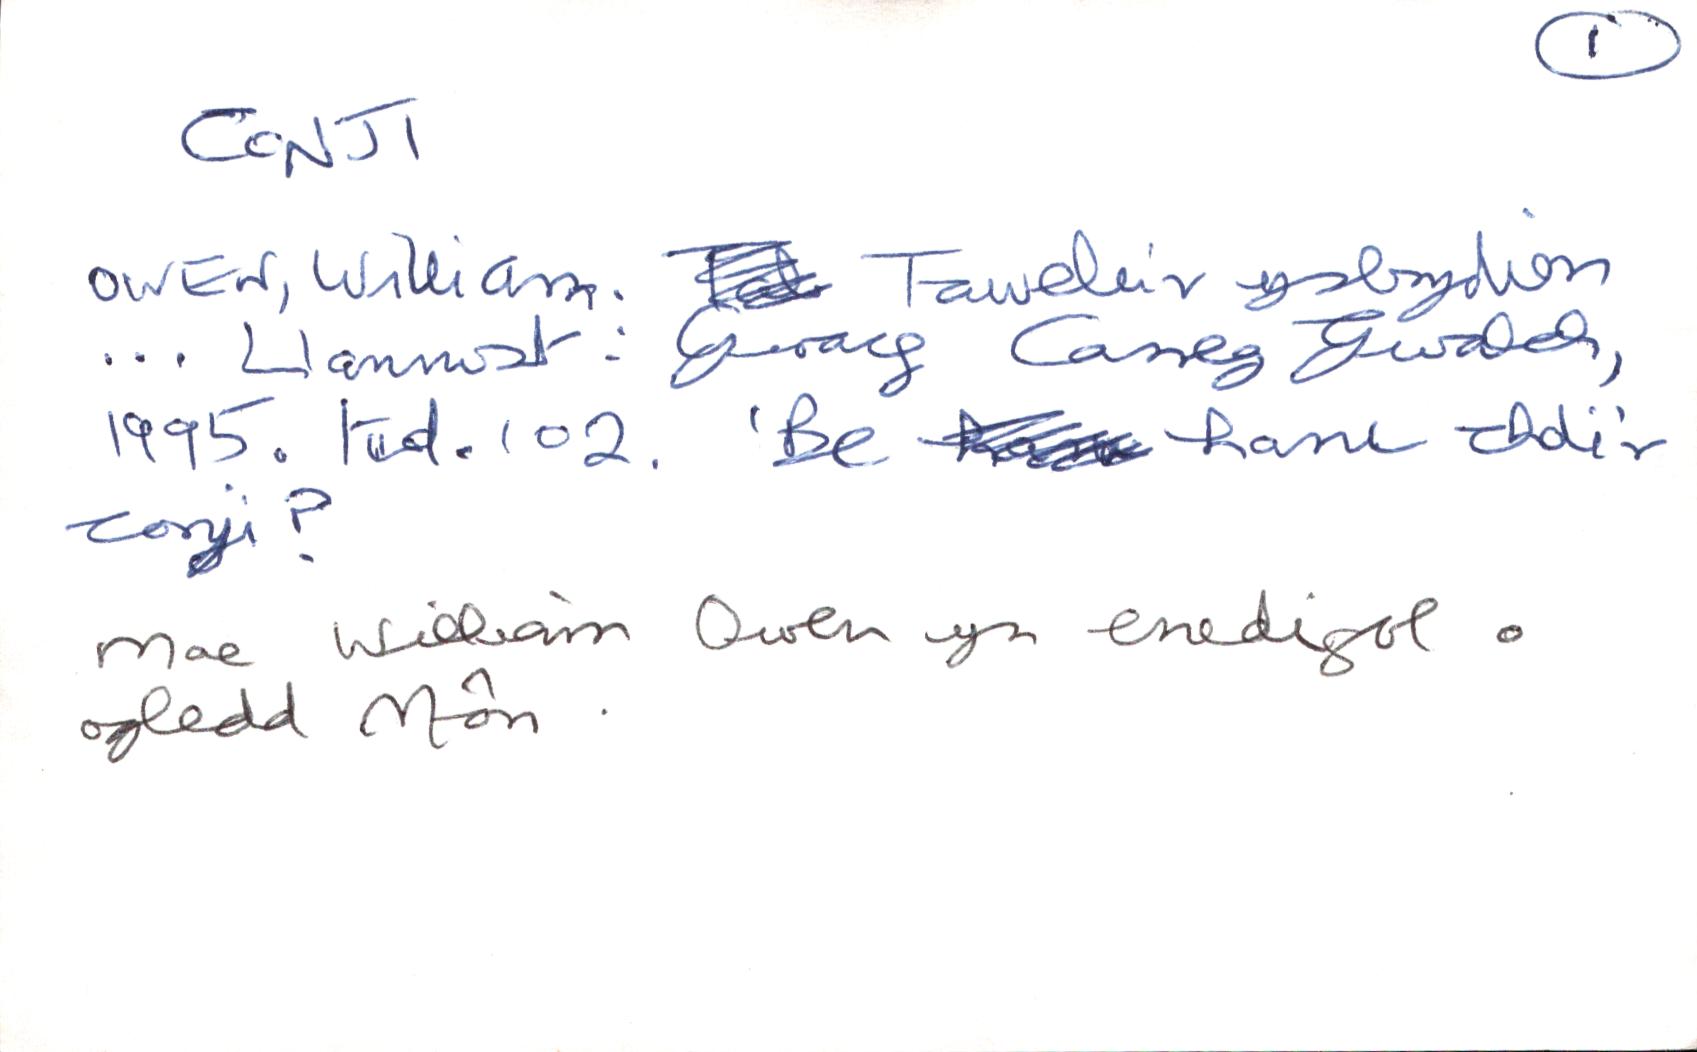 1
CONJI
OWEN, William. Tawelu'r ysbrydion
... Llanrwst: Gwasg Carreg Gwalch,
1995. tud. 102. 'Be hanu chdi'r
conji?
Mae William Owen yn enedigol o
ogledd Môn.